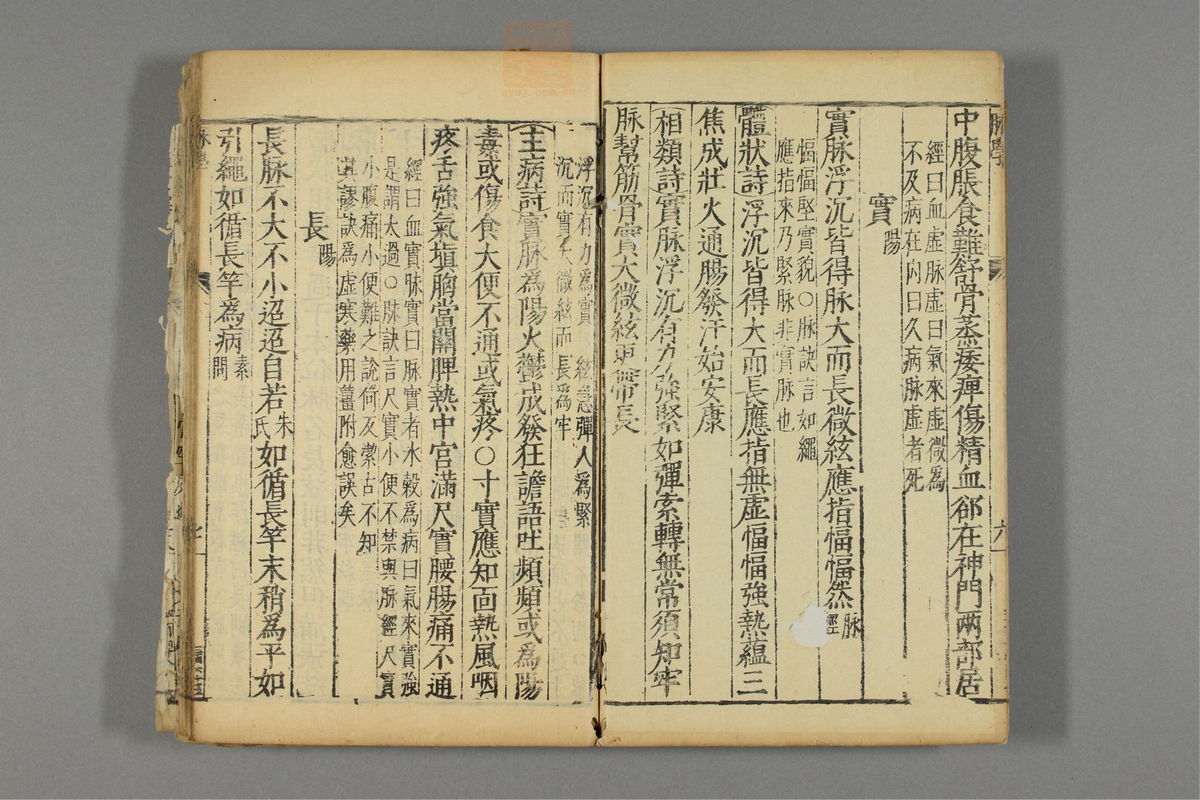 中腹脹食難舒骨蒸痿痺傷精血卻在神門兩部居
經曰血虛脉虛曰氣來虛微爲
不及病在内曰久病脉虛者死
實陽
實脉浮沉皆得脉大而長微絃應指愊愊然脉經
愊愊堅實貌○脉訣言如繩
應指來乃緊脉非實脉也
體狀詩浮沉皆得大而長應指無虛愊愊強熱蘊三
焦成壯火通腸發汗始安康
相類詩實脉浮沉有力強緊如彈索轉無常須知牢
脉幫筋骨實大微絃更帶長
浮沉有力爲實 絃急彈人爲緊
沉而實大微絃而長爲牢
主病詩實脉爲陽火鬱成發狂譫語吐頻頻或爲陽
毒或傷食大便不通或氣疼○寸實應知面熱風咽
疼舌強氣填胸當關脾熱中宮滿尺實腰腸痛不通
經曰血實脉實曰脉實者水穀爲病曰氣來實強
是謂太過○脉訣言尺實小便不禁與脉經尺實
小腹痛小便難之說何反潔古不知
其謬訣爲虛寒藥用薑附愈誤矣
長陽
長脉不大不小迢迢自若朱氏如循長竿末稍爲平如
引繩如循長竿爲病素問
脉學